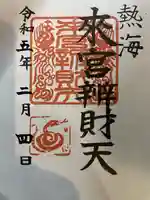 熱海
來宮辨財天
令和五年二月四日